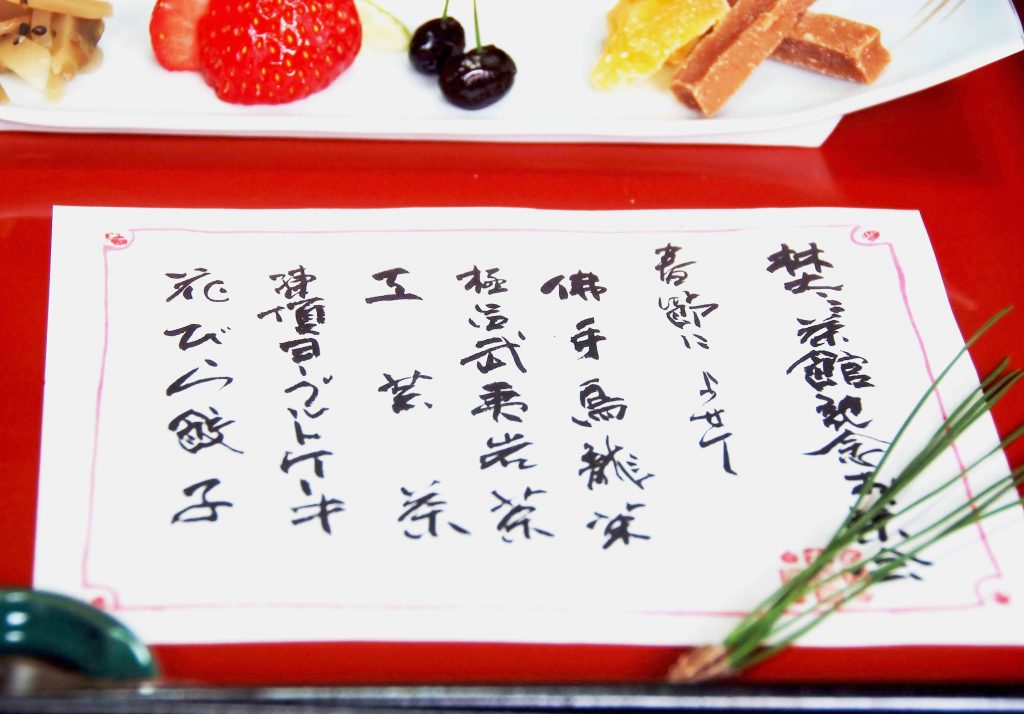 茶館記念お茶会
春節によせて
佛手烏龍茶
極品武夷岩茶
工芸茶
凍頂ヨーグルトケーキ
花びら餃子